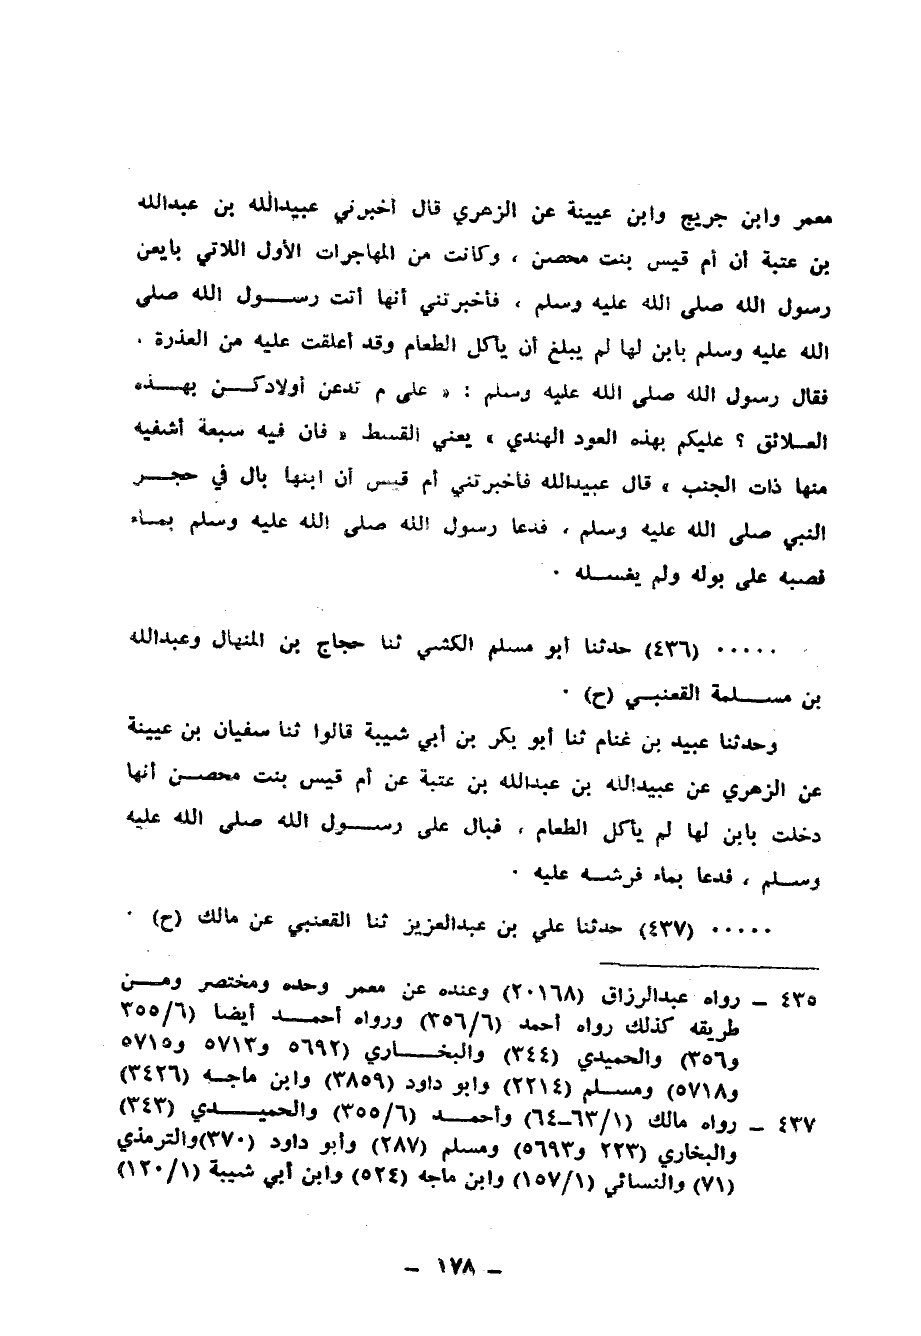 معمر وابن جريج وابن عيينة عن الزهري قال أخبرني عبيدالله بن عبدالله
بن عتبة أن أم قيس بنت محصن ، وكانت من المهاجرات الأول اللاتي بايعن
رسول الله صلى الله عليه وسلم ، فأخبرتني أنها أتت رسول الله صلى
الله عليه وسلم بابن لها لم يبلغ أن يأكل الطعام وقد أعلقت عليه من العذرة ،
فقال رسول الله صلى الله عليه وسلم : « على م تدعن أولادكن بهذه
العلائق ؟ عليكم بهذه العود الهندي » يعني القسط « فان فيه سبعة أشفيه
منها ذات الجنب » قال عبيدالله فأخبرتني أم قيس أن ابنها بال في حجر
النبي صلى الله عليه وسلم ، فدعا رسول الله صلى الله عليه وسلم بماء
فصبه على بوله ولم يغسله ٠
٠٠٠٠٠ (٤٣٦) حدثنا أبو مسلم الكشي ثنا حجاج بن المنهال وعبدالله
بن مسلمة القعنبي (ح) ٠
وحدثنا عبيد بن غنام ثنا أبو بكر بن أبي شيبة قالوا ثنا سفيان بن عيينة
عن الزهري عن عبيدالله بن عبدالله بن عتبة عن أم قيس بنت محصن أنها
دخلت بابن لها لم يأكل الطعام ، فبال على رسول الله صلى الله عليه
وسلم ، فدعا بماء فرشه عليه ٠
٠٠٠٠٠ (٤٣٧) حدثنا علي بن عبدالعزيز ثنا القعنبي عن مالك (ح) ٠
٤٣٥ – رواه عبدالرزاق (٢٠١٦٨) وعنده عن معمر وحده ومختصر ومن
طريقه كذلك رواه أحمد (٣٥٦/٦) ورواه أحمد أيضا (٣٥٥/٦
و٣٥٦) والحميدي (٣٤٤) والبخاري (٥٦٩٢ و٥٧١٣ و٥٧١٥
و٥٧١٨) ومسلم (٢٢١٤) وابو داود (٣٨٥٩) وابن ماجه (٣٤٢٦)
٤٣٧ – رواه مالك (٦٣/١–٦٤) وأحمد (٣٥٥/٦) والحميدي (٣٤٣)
والبخاري (٢٢٣ و٥٦٩٣) ومسلم (٢٨٧) وأبو داود (٣٧٠)والترمذي
(٧١) والنسائي (١٥٧/١) وابن ماجه (٥٢٤) وابن أبي شيبة (١٢٠/١)
– ١٧٨ –